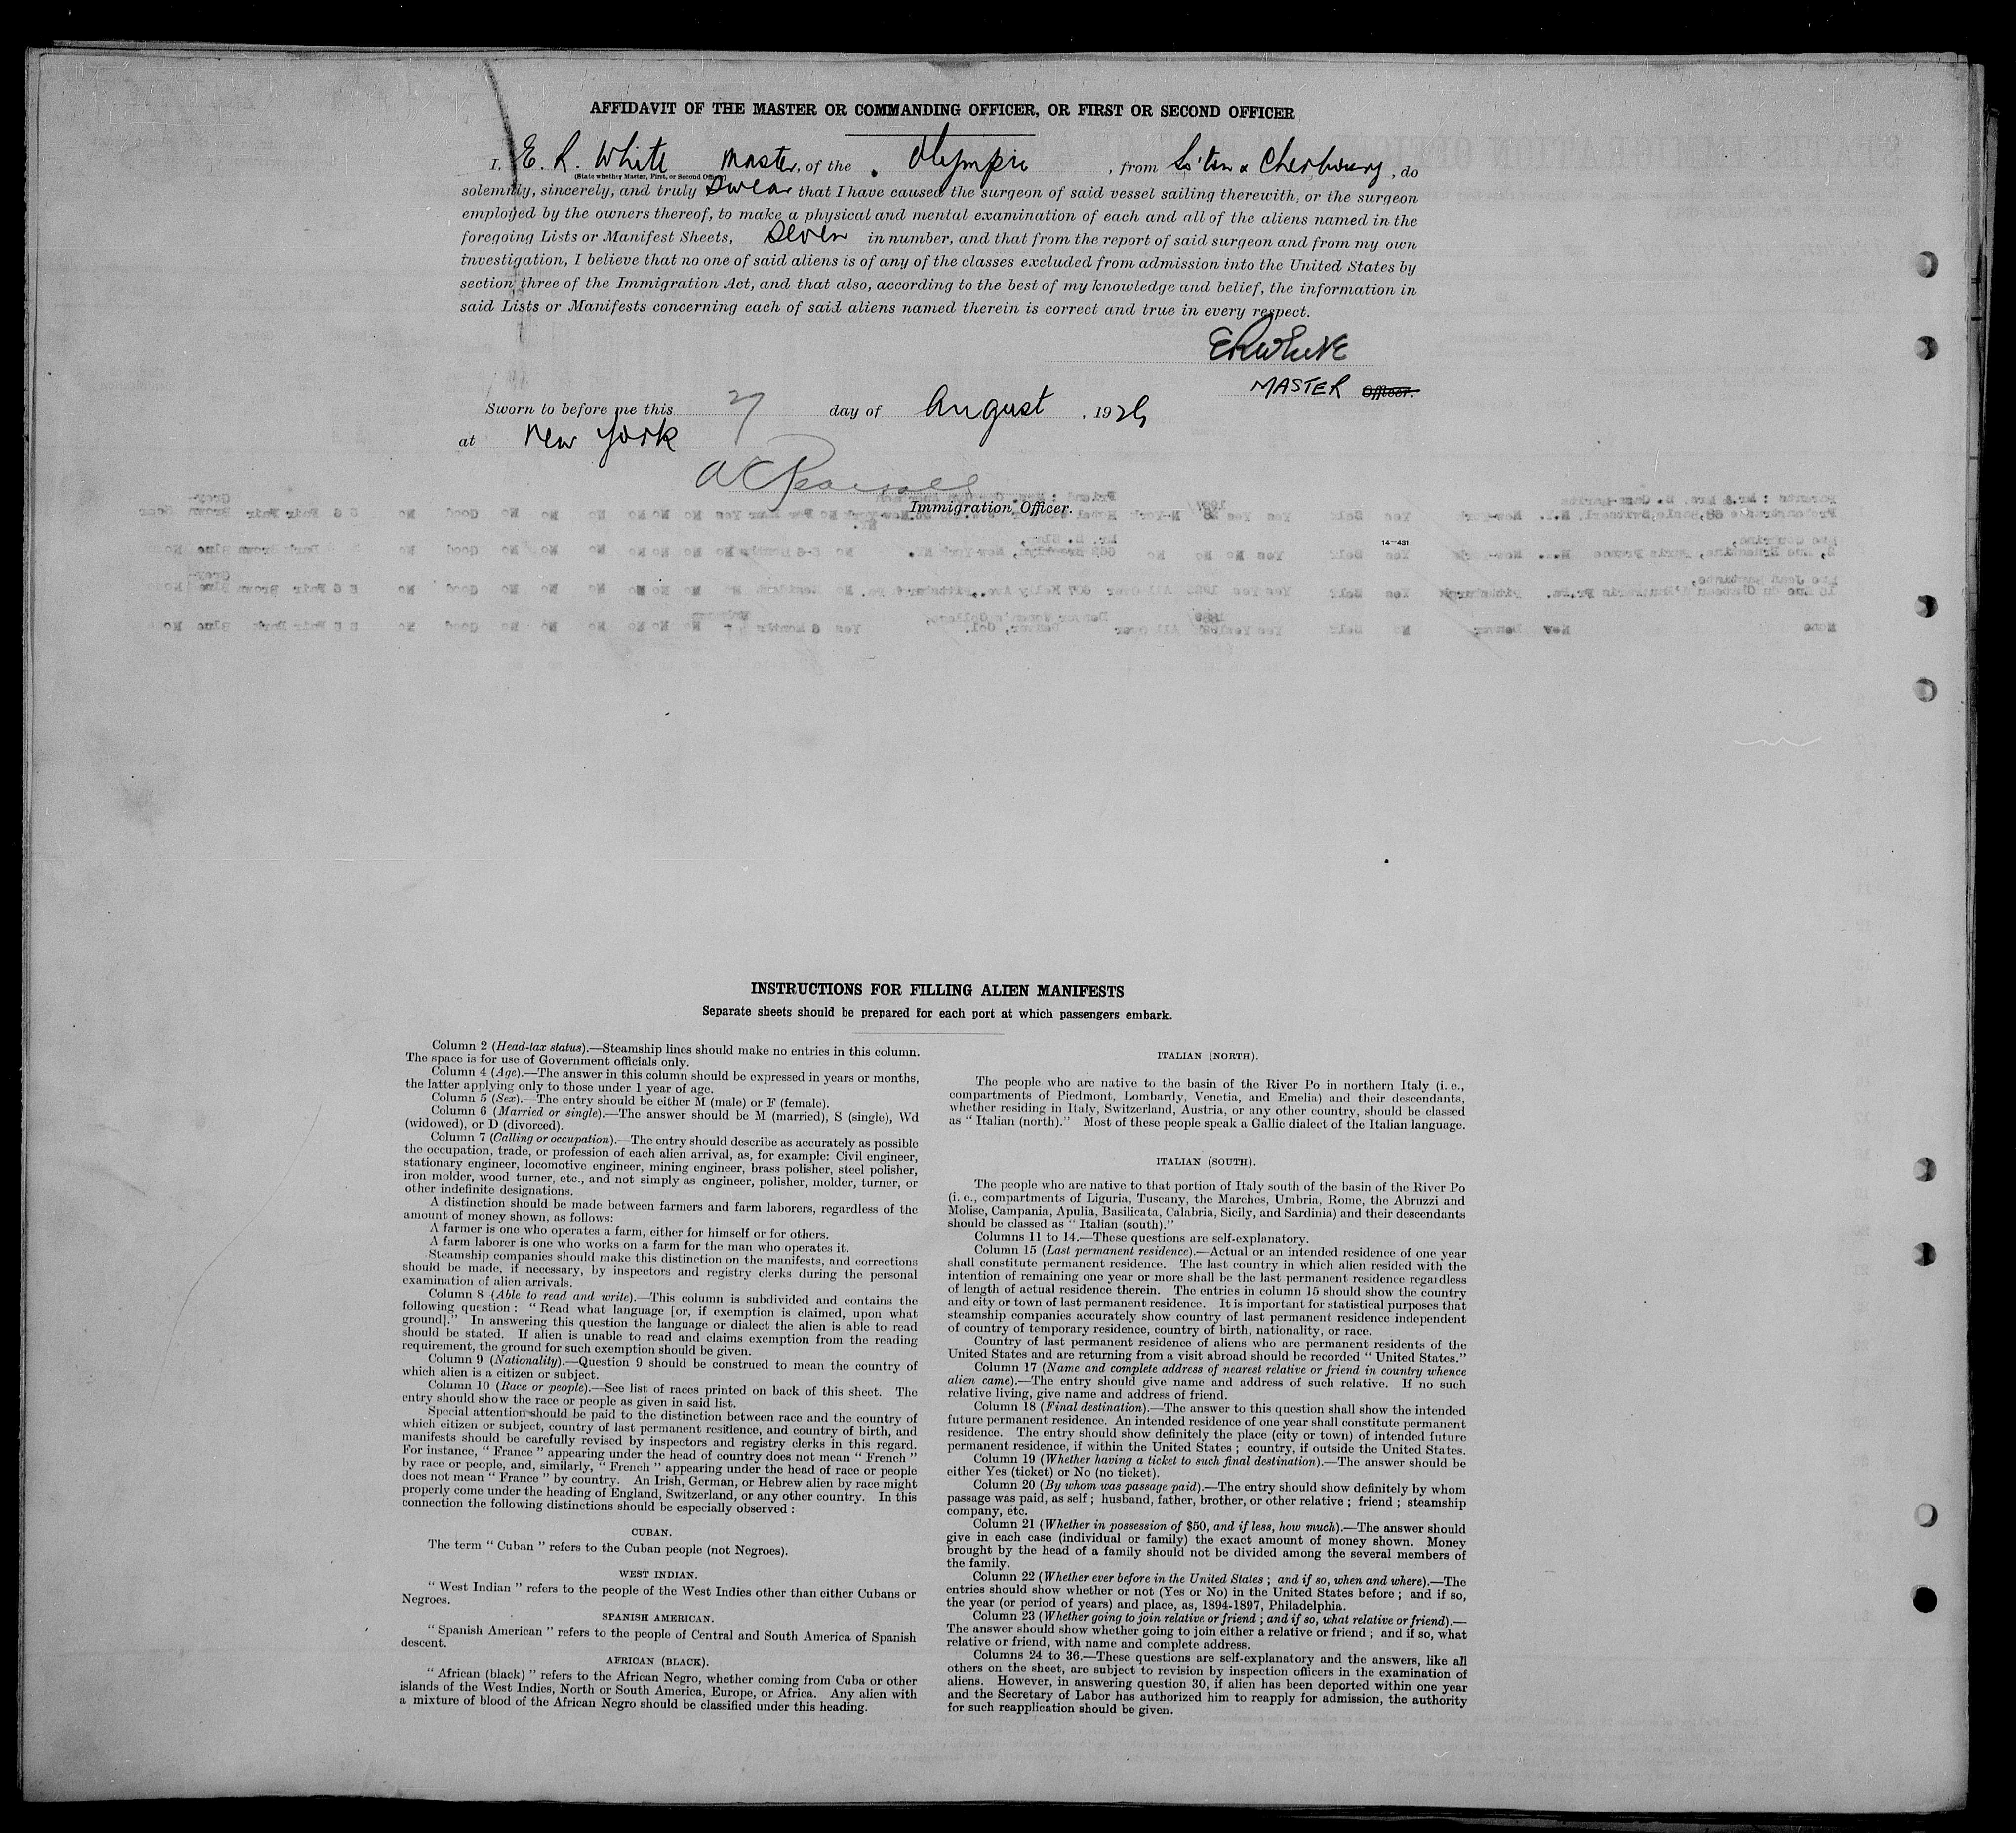 AFFIDAVIT OF THE MASTER OR COMMANDING OFFICER, OR FIRST OR SECOND OFFICER
I, E. R. White Master, of the Olympic, from So'ton & Cherbourg, do
(State whether Master, First, or Second Officer)
solemnly, sincerely, and truly swear that I have caused the surgeon of said vessel sailing therewith, or the surgeon
employed by the owners thereof, to make a physical and mental examination of each and all of the aliens named in the
foregoing Lists or Manifest Sheets, seven in number, and that from the report of said surgeon and from my own
investigation, I believe that no one of said aliens is of any of the classes excluded from admission into the United States by
section three of the Immigration Act, and that also, according to the best of my knowledge and belief, the information in
said Lists or Manifests concerning each of said aliens named therein is correct and true in every respect.
ERWhite
MASTER Officer.
Sworn to before me this 27 day of August, 192
at New York
Immigration Officer.
14—431
INSTRUCTIONS FOR FILLING ALIEN MANIFESTS
Separate sheets should be prepared for each port at which passengers embark.
Column 2 (Head-tax status).—Steamship lines should make no entries in this column.
The space is for use of Government officials only.
Column 4 (Age).—The answer in this column should be expressed in years or months,
the latter applying only to those under 1 year of age.
Column 5 (Sex).—The entry should be either M (male) or F (female).
Column 6 (Married or single).—The answer should be M (married), S (single), Wd
(widowed), or D (divorced).
Column 7 (Calling or occupation).—The entry should describe as accurately as possible
the occupation, trade, or profession of each alien arrival, as, for example: Civil engineer,
stationary engineer, locomotive engineer, mining engineer, brass polisher, steel polisher,
iron molder, wood turner, etc., and not simply as engineer, polisher, molder, turner, or
other indefinite designations.
A distinction should be made between farmers and farm laborers, regardless of the
amount of money shown, as follows:
A farmer is one who operates a farm, either for himself or for others.
A farm laborer is one who works on a farm for the man who operates it.
Steamship companies should make this distinction on the manifests, and corrections
should be made, if necessary, by inspectors and registry clerks during the personal
examination of alien arrivals.
Column 8 (Able to read and write).—This column is subdivided and contains the
following question: "Read what language [or, if exemption is claimed, upon what
ground]." In answering this question the language or dialect the alien is able to read
should be stated. If alien is unable to read and claims exemption from the reading
requirement, the ground for such exemption should be given.
Column 9 (Nationality).—Question 9 should be construed to mean the country of
which alien is a citizen or subject.
Column 10 (Race or people).—See list of races printed on back of this sheet. The
entry should show the race or people as given in said list.
Special attention should be paid to the distinction between race and the country of
which citizen or subject, country of last permanent residence, and country of birth, and
manifests should be carefully revised by inspectors and registry clerks in this regard.
For instance, "France" appearing under the head of country does not mean "French"
by race or people, and, similarly, "French" appearing under the head of race or people
does not mean "France" by country. An Irish, German, or Hebrew alien by race might
properly come under the heading of England, Switzerland, or any other country. In this
connection the following distinctions should be especially observed:
CUBAN.
The term "Cuban" refers to the Cuban people (not Negroes).
WEST INDIAN.
"West Indian" refers to the people of the West Indies other than either Cubans or
Negroes.
SPANISH AMERICAN.
"Spanish American" refers to the people of Central and South America of Spanish
descent.
AFRICAN (BLACK).
"African (black)" refers to the African Negro, whether coming from Cuba or other
islands of the West Indies, North or South America, Europe, or Africa. Any alien with
a mixture of blood of the African Negro should be classified under this heading.
ITALIAN (NORTH).
The people who are native to the basin of the River Po in northern Italy (i. e.,
compartments of Piedmont, Lombardy, Venetia, and Emelia) and their descendants,
whether residing in Italy, Switzerland, Austria, or any other country, should be classed
as "Italian (north)." Most of these people speak a Gallic dialect of the Italian language.
ITALIAN (SOUTH).
The people who are native to that portion of Italy south of the basin of the River Po
(i. e., compartments of Liguria, Tuscany, the Marches, Umbria, Rome, the Abruzzi and
Molise, Campania, Apulia, Basilicata, Calabria, Sicily, and Sardinia) and their descendants
should be classed as "Italian (south)."
Columns 11 to 14.—These questions are self-explanatory.
Column 15 (Last permanent residence).—Actual or an intended residence of one year
shall constitute permanent residence. The last country in which alien resided with the
intention of remaining one year or more shall be the last permanent residence regardless
of length of actual residence therein. The entries in column 15 should show the country
and city or town of last permanent residence. It is important for statistical purposes that
steamship companies accurately show country of last permanent residence independent
of country of temporary residence, country of birth, nationality, or race.
Country of last permanent residence of aliens who are permanent residents of the
United States and are returning from a visit abroad should be recorded "United States."
Column 17 (Name and complete address of nearest relative or friend in country whence
alien came).—The entry should give name and address of such relative. If no such
relative living, give name and address of friend.
Column 18 (Final destination).—The answer to this question shall show the intended
future permanent residence. An intended residence of one year shall constitute permanent
residence. The entry should show definitely the place (city or town) of intended future
permanent residence, if within the United States; country, if outside the United States.
Column 19 (Whether having a ticket to such final destination).—The answer should be
either Yes (ticket) or No (no ticket).
Column 20 (By whom was passage paid).—The entry should show definitely by whom
passage was paid, as self; husband, father, brother, or other relative; friend; steamship
company, etc.
Column 21 (Whether in possession of $50, and if less, how much).—The answer should
give in each case (individual or family) the exact amount of money shown. Money
brought by the head of a family should not be divided among the several members of
the family.
Column 22 (Whether ever before in the United States; and if so, when and where).—The
entries should show whether or not (Yes or No) in the United States before; and if so,
the year (or period of years) and place, as, 1894-1897, Philadelphia.
Column 23 (Whether going to join relative or friend; and if so, what relative or friend).—
The answer should show whether going to join either a relative or friend; and if so, what
relative or friend, with name and complete address.
Columns 24 to 36.—These questions are self-explanatory and the answers, like all
others on the sheet, are subject to revision by inspection officers in the examination of
aliens. However, in answering question 30, if alien has been deported within one year
and the Secretary of Labor has authorized him to reapply for admission, the authority
for such reapplication should be given.